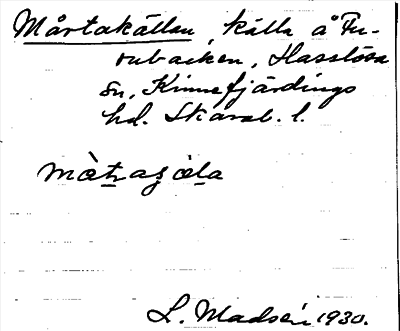 Mårtakällan, källa å Fu-
rubacken, Hasslösa
sn, Kinnefjärdings
hd. Skarab. l.
L. Madsén 1930.